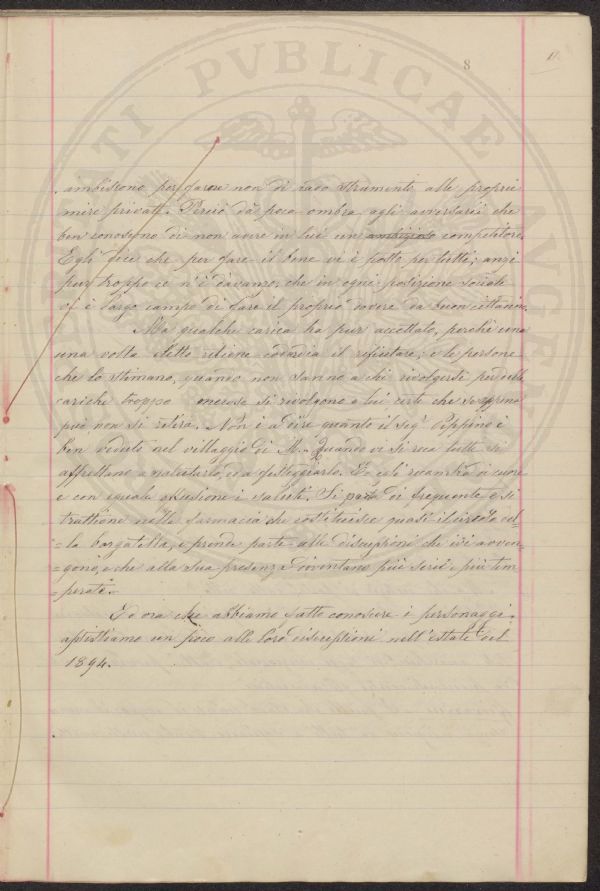 8
ambiscono per farne non di rado strumenti alle proprie
mire private. Perciò dà poca ombra agli avversarii che
ben conoscono di non avere in lui un ambizioso competitore.
Egli dice che per fare il bene vi è posto per tutti, anzi
pur troppo ce n'è d'avanzo, che in ogni posizione sociale
vi è largo campo di fare il proprio dovere da buon cittadino.
Ma qualche carica ha pur accettato, perchè una
una volta eletto ritiene codardia il rifiutare; e le persone
che lo stimano, quando non sanno a chi rivolgersi per delle
cariche troppo onerose si rivolgono a lui certe che
poi non si ritira. Non è a dire quanto il sigr Peppino è
ben veduto nel villaggio di M. Quando vi si reca tutti si
affrettano a salutarlo, ed a festeggiarlo. Ed egli ricambia di cuore
e con eguale effusione i saluti. Si porta di frequente e si
trattiene nella farmacia che costituisce quasi il circolo del=
=la borgatella, e prende parte alle discussioni che ivi avven=
=gono, e che alla sua presenza diventano più serie e più tem
=perate.
Ed ora che abbiamo fatto conoscere i personaggi
assistiamo un poco alle loro discussioni nell'estate del
1894.
PVBLICAE